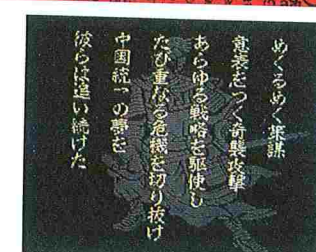 めくるめく策謀
意表をつく奇襲攻撃
あらゆる戦略を駆使し
たび重なる危機を切り抜け
中国統一の夢を
彼らは追い続けた